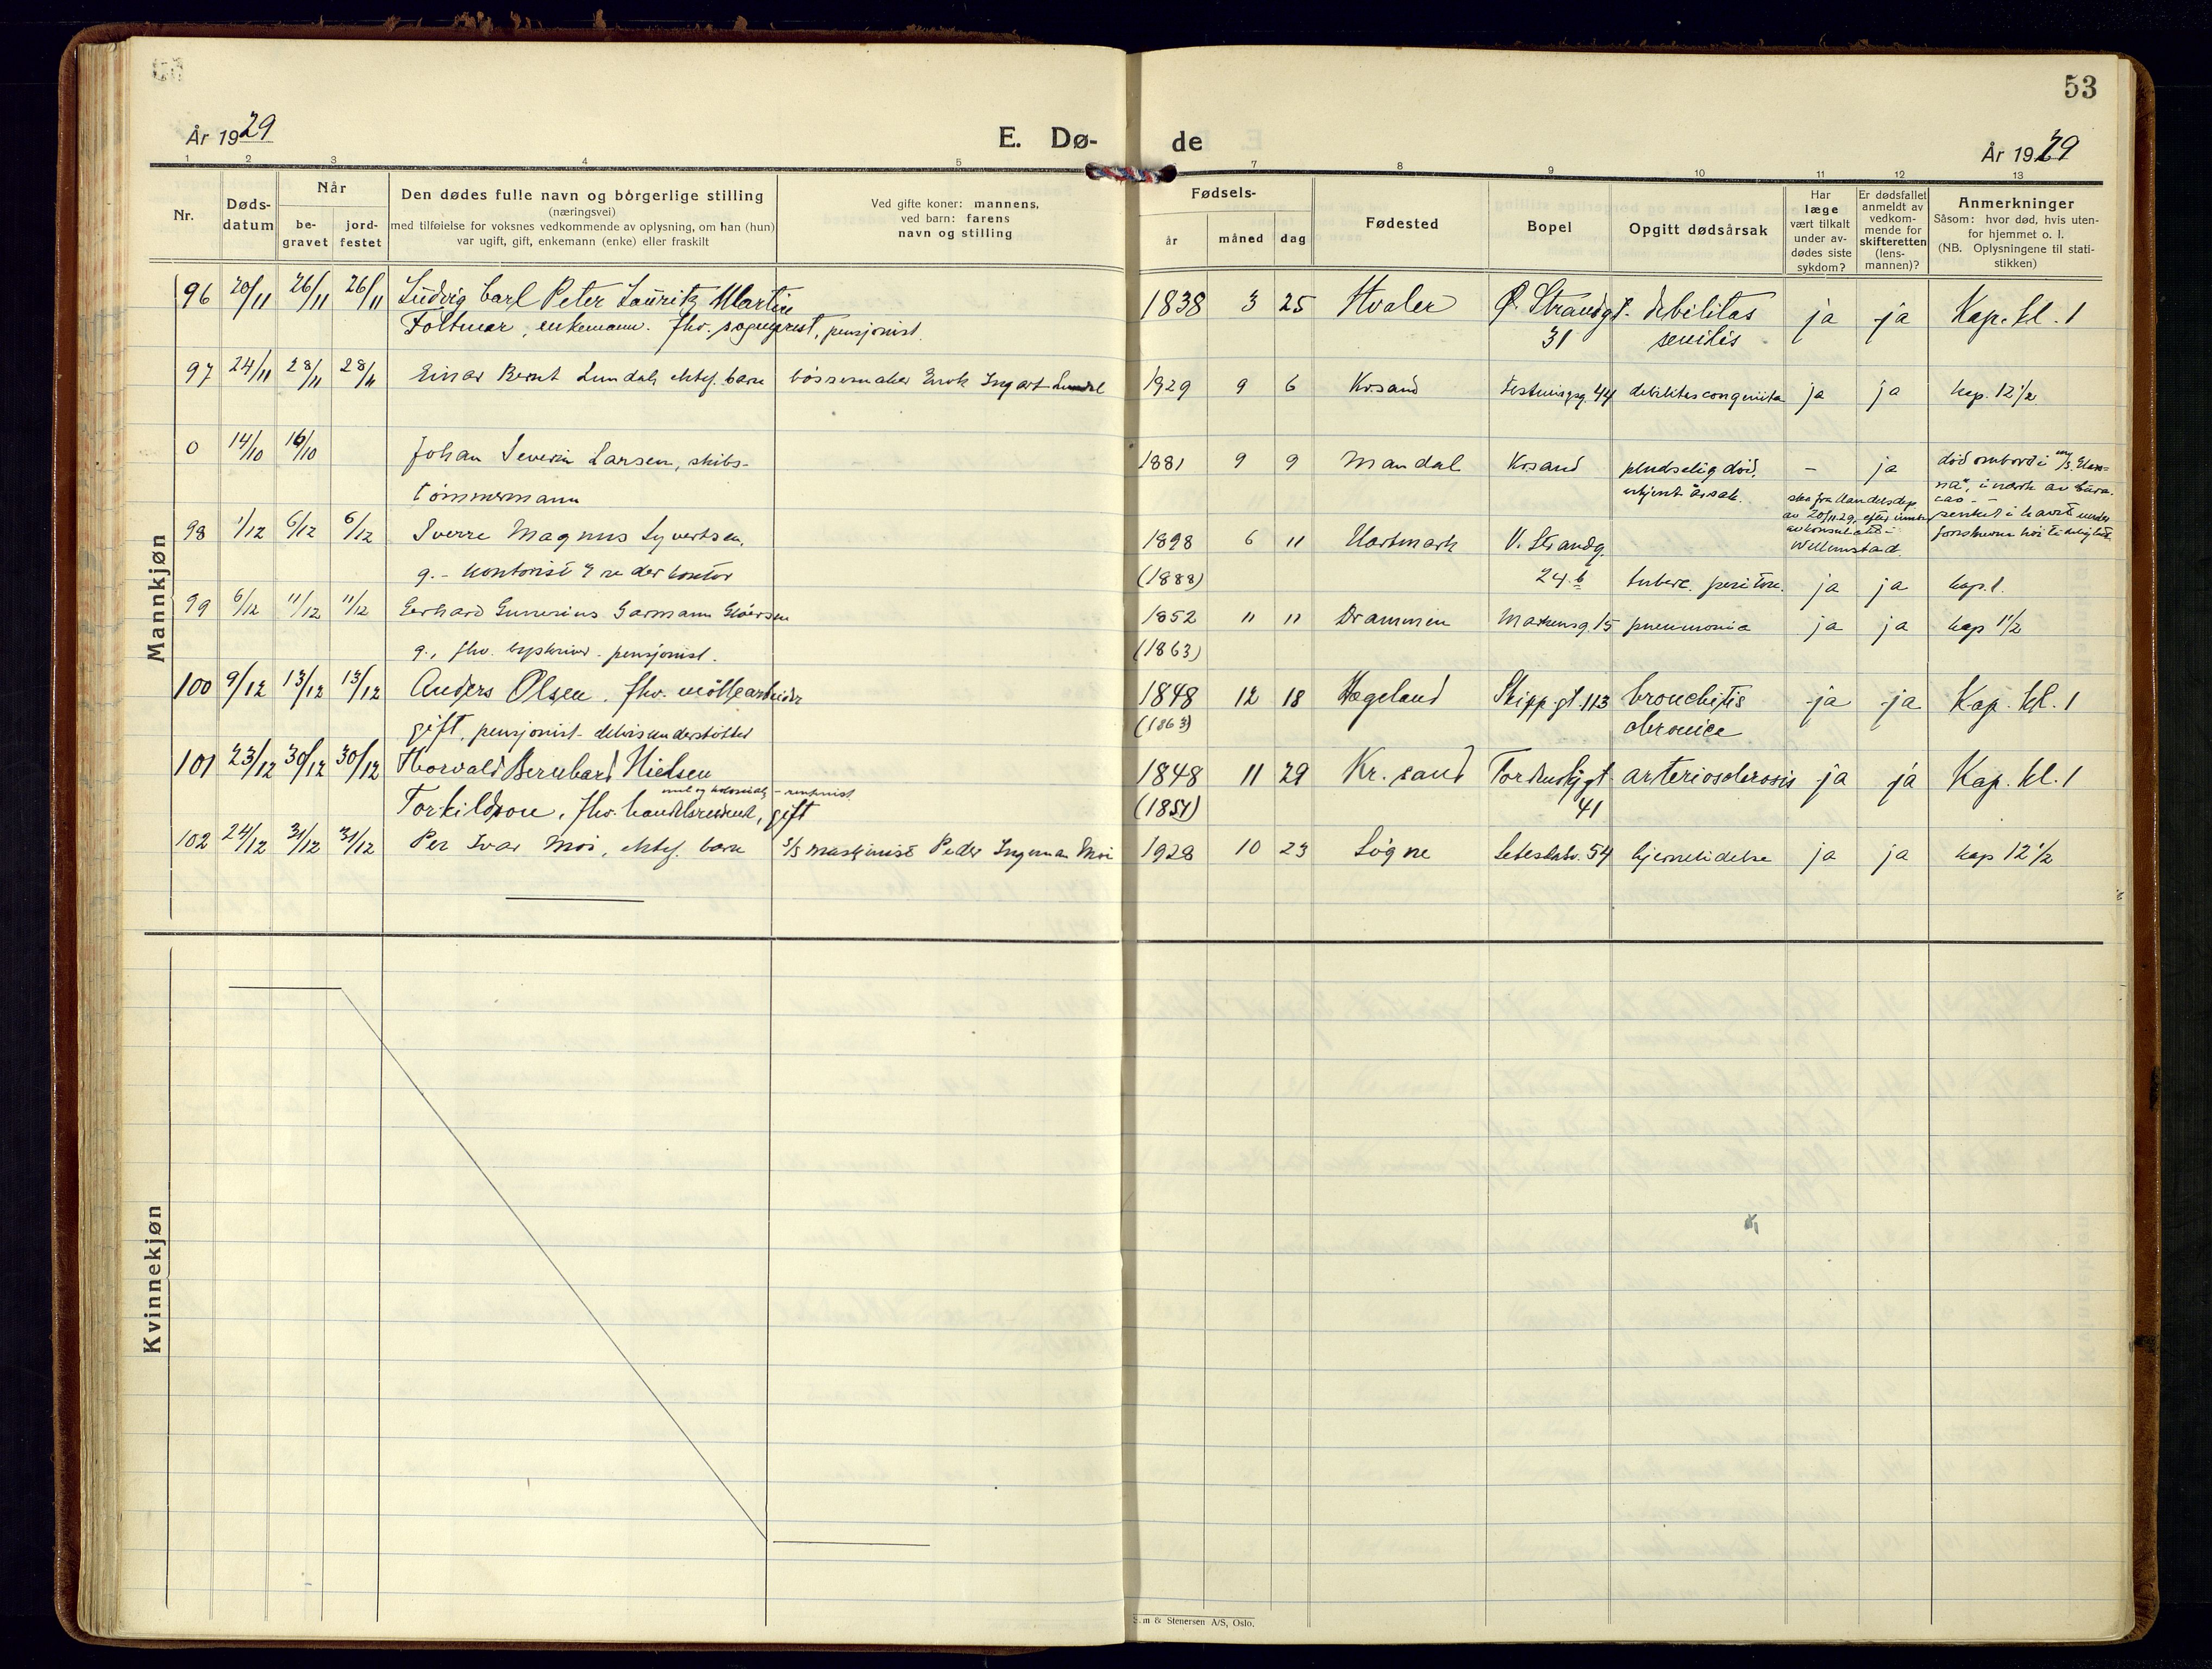 53
År 1929
E. Dø-
de
År 1929
1 2 3 4 5 7 8 9 10 11 12 13
Nr.
Døds-
datum
Når
be-
gravet
jord-
festet
Den dødes fulle navn og borgerlige stilling
(næringsvei)
med tilføielse for voksnes vedkommende av oplysning, om han (hun)
var ugift, gift, enkemann (enke) eller fraskilt
Ved gifte koner: mannens,
ved barn: farens
navn og stilling
Fødsels-
år
måned
dag
Fødested
Bopel
Opgitt dødsårsak
Har
læge
vært tilkalt
under av-
dødes siste
sykdom?
Er dødsfallet
anmeldt av
vedkom-
mende for
skifteretten
(lens-
mannen)?
Anmerkninger
Såsom: hvor død, hvis uten-
for hjemmet o. l.
(NB. Oplysningene til stati-
stikken)
Mannkjøn
96 20/11 26/11 26/11 Ludvig Carl Peter Lauritz Martin 1838 3 25 Hvaler Ø. Strandgt. debilitas ja ja Kap. kl. 1
Foltmar, enkemann. fhv. sogneprest, pensjonist. 31 senilis
97 24/11 28/11 28/11 Einar Bernt Lundal, ektef. barn bøssemaker Enok Ingart Lundal 1929 9 6 Krsand Festningsg. 44 debilitas congenita ja ja kap. 12 1/2
0 14/10 16/10 Johan Severin Larsen, skibs- 1881 9 9 Mandal Krsand pludselig død, – ja død ombord i
tømmermann ukjent årsak. skr. fra Handelsdep.
av 20/11.29, efter
av konsulatet i
Willemstad.
senket i havet under
98 1/12 6/12 6/12 Sverre Magnus Syvertsen, 1898 6 11 Hartmark V. Strandg.
g. - kontorist rederkontor (1888) 24 b tuberc. periton. ja ja kap. 1.
99 6/12 11/12 11/12 Gerhard Gunerius Garmann Gløersen 1852 11 11 Drammen Markensg. 15 pneumonia ja ja kap 1 1/2
g., fhv. byskriver - pensjonist. (1863)
100 9/12 13/12 13/12 Anders Olsen. fhv. møllearbeider 1848 12 18 Hægeland Skipp.gt. 113 bronchitis ja ja Kap. kl. 1
gift, pensjonist - delvis understøttet (1863) chronica
101 23/12 30/12 30/12 Thorvald Bernhard Nielsen 1848 11 29 Kr.sand Tordenskj.gt arteriosclerosis ja ja Kap. kl. 1
Torkildson, fhv. handelsreisende, gift (1851) 41
102 24/12 31/12 31/12 Per Ivar Moi, ektef. barn s/s maskinist Peder Ingeman Moi 1928 10 23 Søgne Setesdalsv. 54 hjernelidelse ja ja kap 12 1/2
Kvinnekjøn
& Stenersen A/S, Oslo.